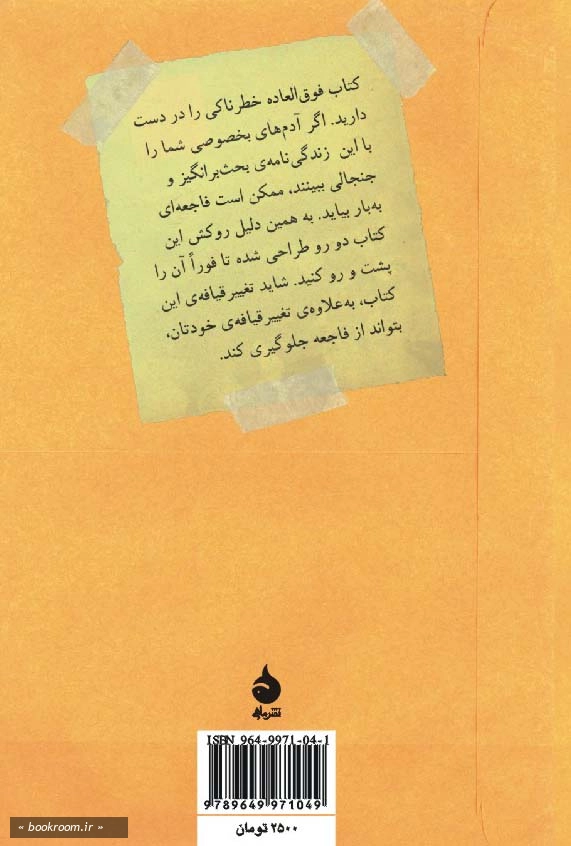 کتاب فوق‌العاده خطرناکی را در دست
دارید. اگر آدم‌های بخصوصی شما را
با این زندگی‌نامه‌ی بحث‌برانگیز و
جنجالی ببینند، ممکن است فاجعه‌ای
به‌بار بیاید. به همین دلیل روکش این
کتاب دو رو طراحی شده تا فوراً آن را
پشت و رو کنید. شاید تغییرقیافه‌ی این
کتاب، به‌علاوه‌ی تغییرقیافه‌ی خودتان،
بتواند از فاجعه جلوگیری کند.
نشرماهی
ISBN 964-9971-04-1
9789649971049
۲۵۰۰ تومان
« bookroom.ir »